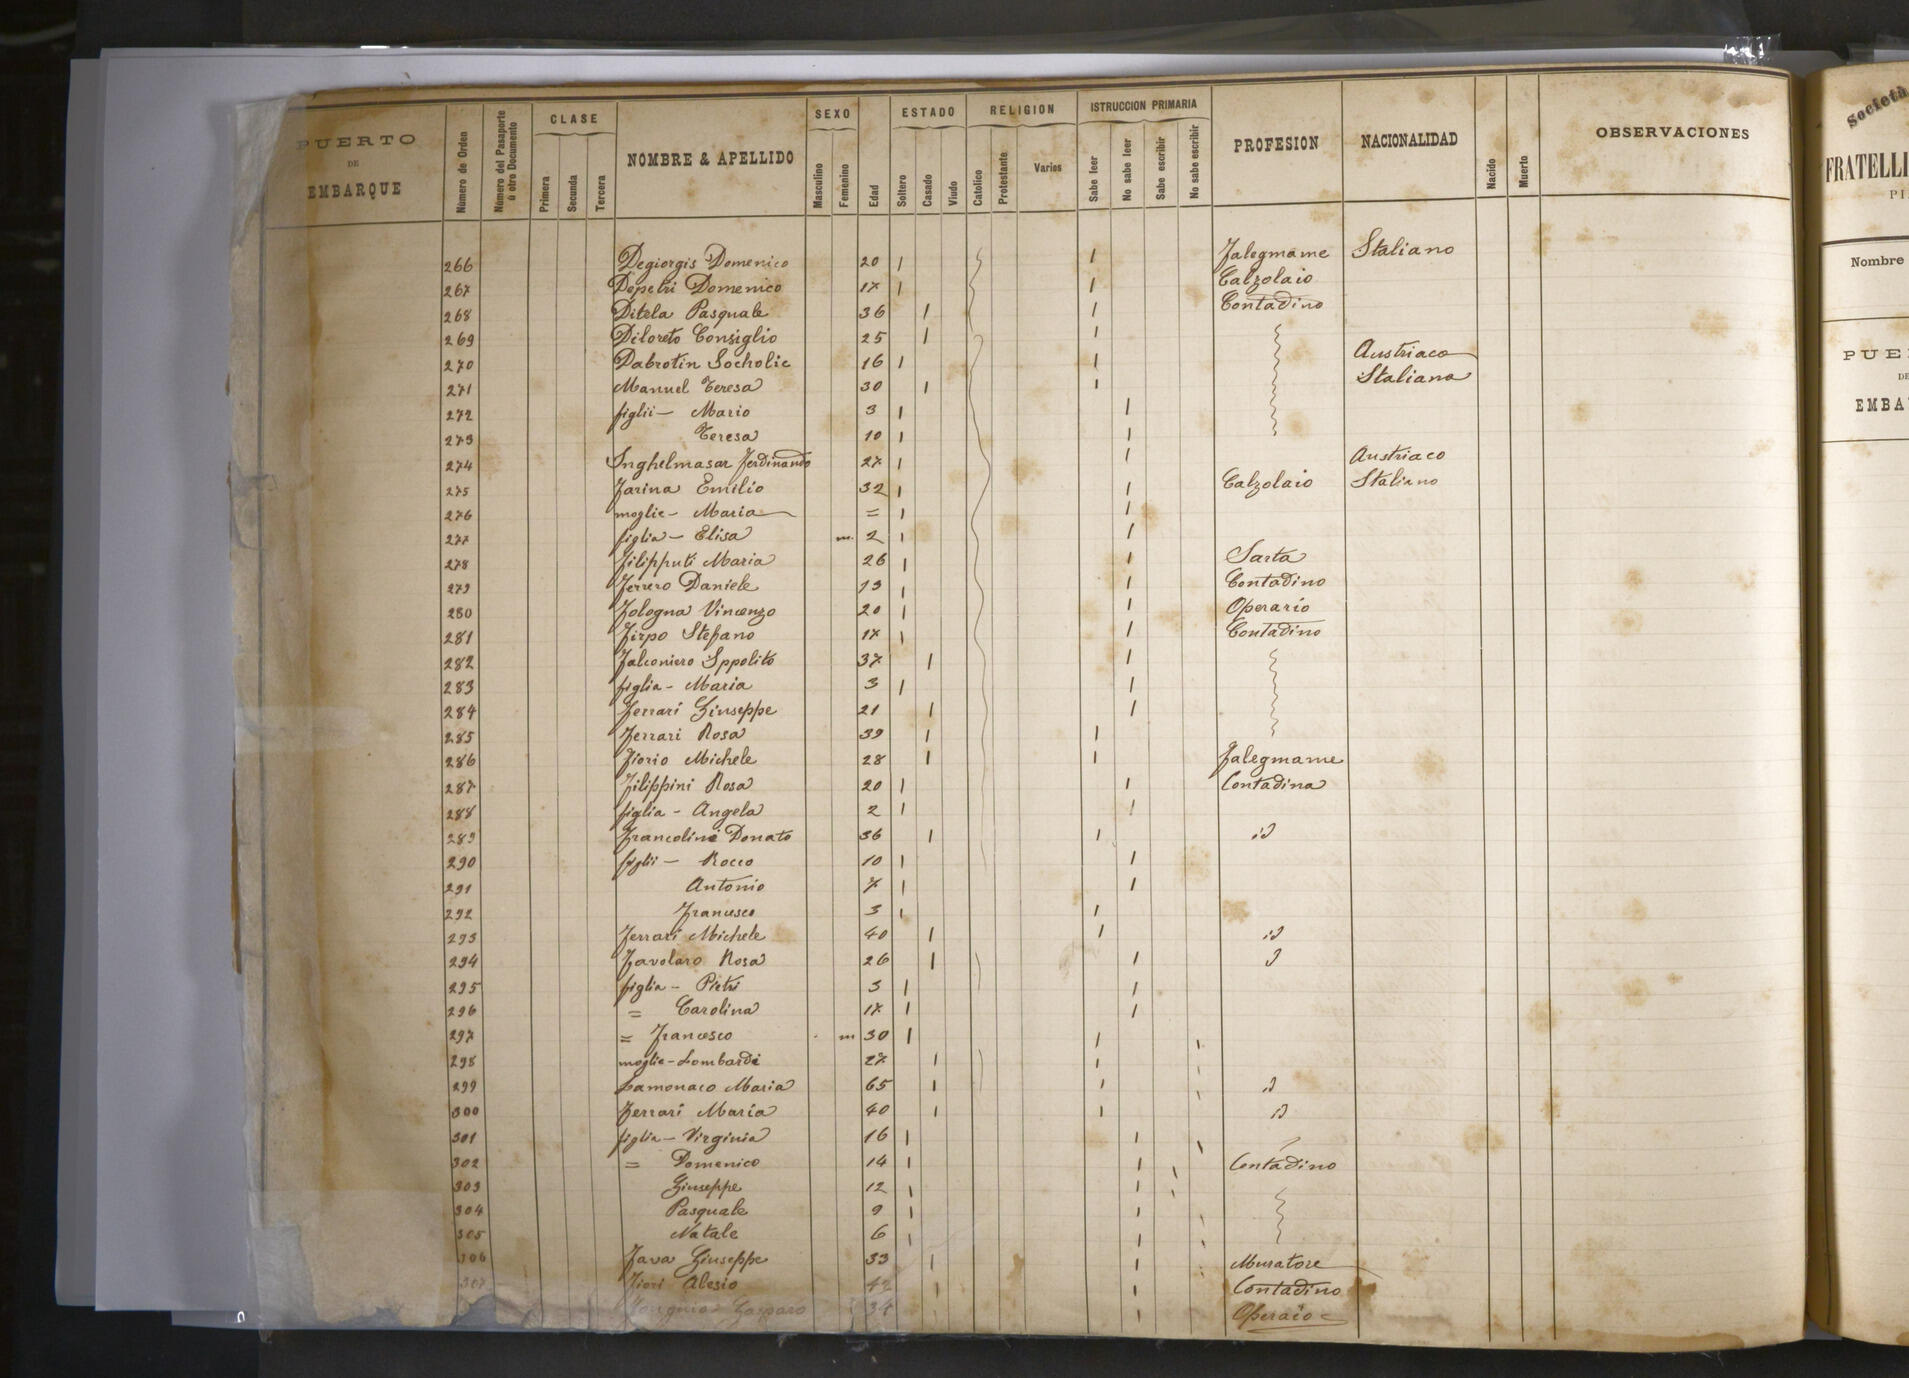 PUERTO DE EMBARQUE
Número de Orden
Número del Pasaporte ú otro Documento
CLASE
Primera Secunda Tercera
NOMBRE & APELLIDO
SEXO
Masculino Femenino
Edad
ESTADO
Soltero Casado Viudo
RELIGION
Catolico Protestante Varios
ISTRUCCION PRIMARIA
Sabe leer No sabe leer Sabe escribir No sabe escribir
PROFESION
NACIONALIDAD
Nacido
Muerto
OBSERVACIONES
266 Degiorgis Domenico 20 Falegmame Italiano
267 Depetri Domenico 17 Calzolaio
268 Ditela Pasquale 36 Contadino
269 Diloreto Consiglio 25
270 Dabrotin Socholic 16 Austriaco
271 Manuel Teresa 30 Italiana
272 figlii - Mario 3
273 Teresa 10
274 Inghelmasar Ferdinando 27 Austriaco
275 Farina Emilio 32 Calzolaio Italiano
276 moglie - Maria =
277 figlia - Elisa m. 2
278 Filipputi Maria 26 Sarta
279 Ferrero Daniele 19 Contadino
280 Fologna Vincenzo 20 Operario
281 Firpo Stefano 17 Contadino
282 Falconiero Ippolito 37
283 figlia - Maria 3
284 Ferrari Giuseppe 21
285 Ferrari Rosa 39
286 Fiorio Michele 28 Falegmame
287 Filippini Rosa 20 Contadina
288 figlia - Angela 2
289 Francolini Donato 36 id
290 figlii - Rocco 10
291 Antonio 7
292 Francesco 3
293 Ferrari Michele 40 id
294 Favolaro Rosa 26
295 figlia - Pietri 3
296 = Carolina 17
297 = Francesco m 30
298 moglie - Lombardi 27
299 Lamonaco Maria 65 id
300 Ferrari Maria 40 id
301 figlia - Virginia 16
302 = Domenico 14 Contadino
303 Giuseppe 12
304 Pasquale 9
305 Natale 6
306 Fava Giuseppe 33 Muratore
307 Fiori Alesio 42 Contadino
Gasparo 34 Operaio
Società
FRATELLI
Nombre